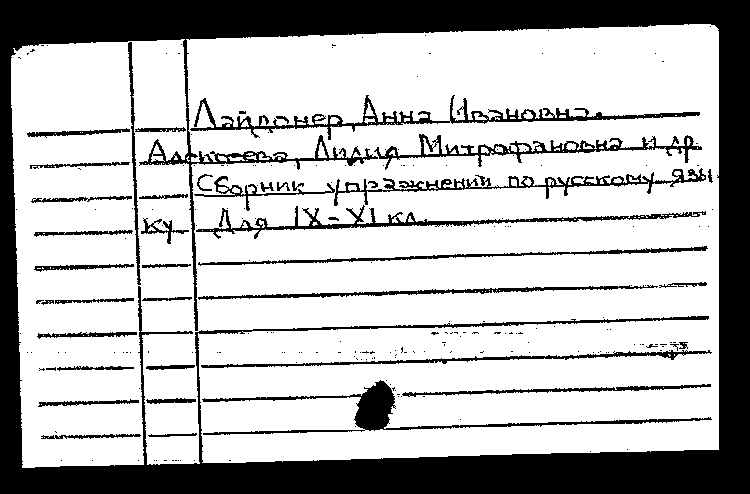 Лайдонер, Анна Ивановна.
Алексеева, Лидия Митрофановна и др.
Сборник упражнений по русскому язы-
ку. Для IX-XI кл.